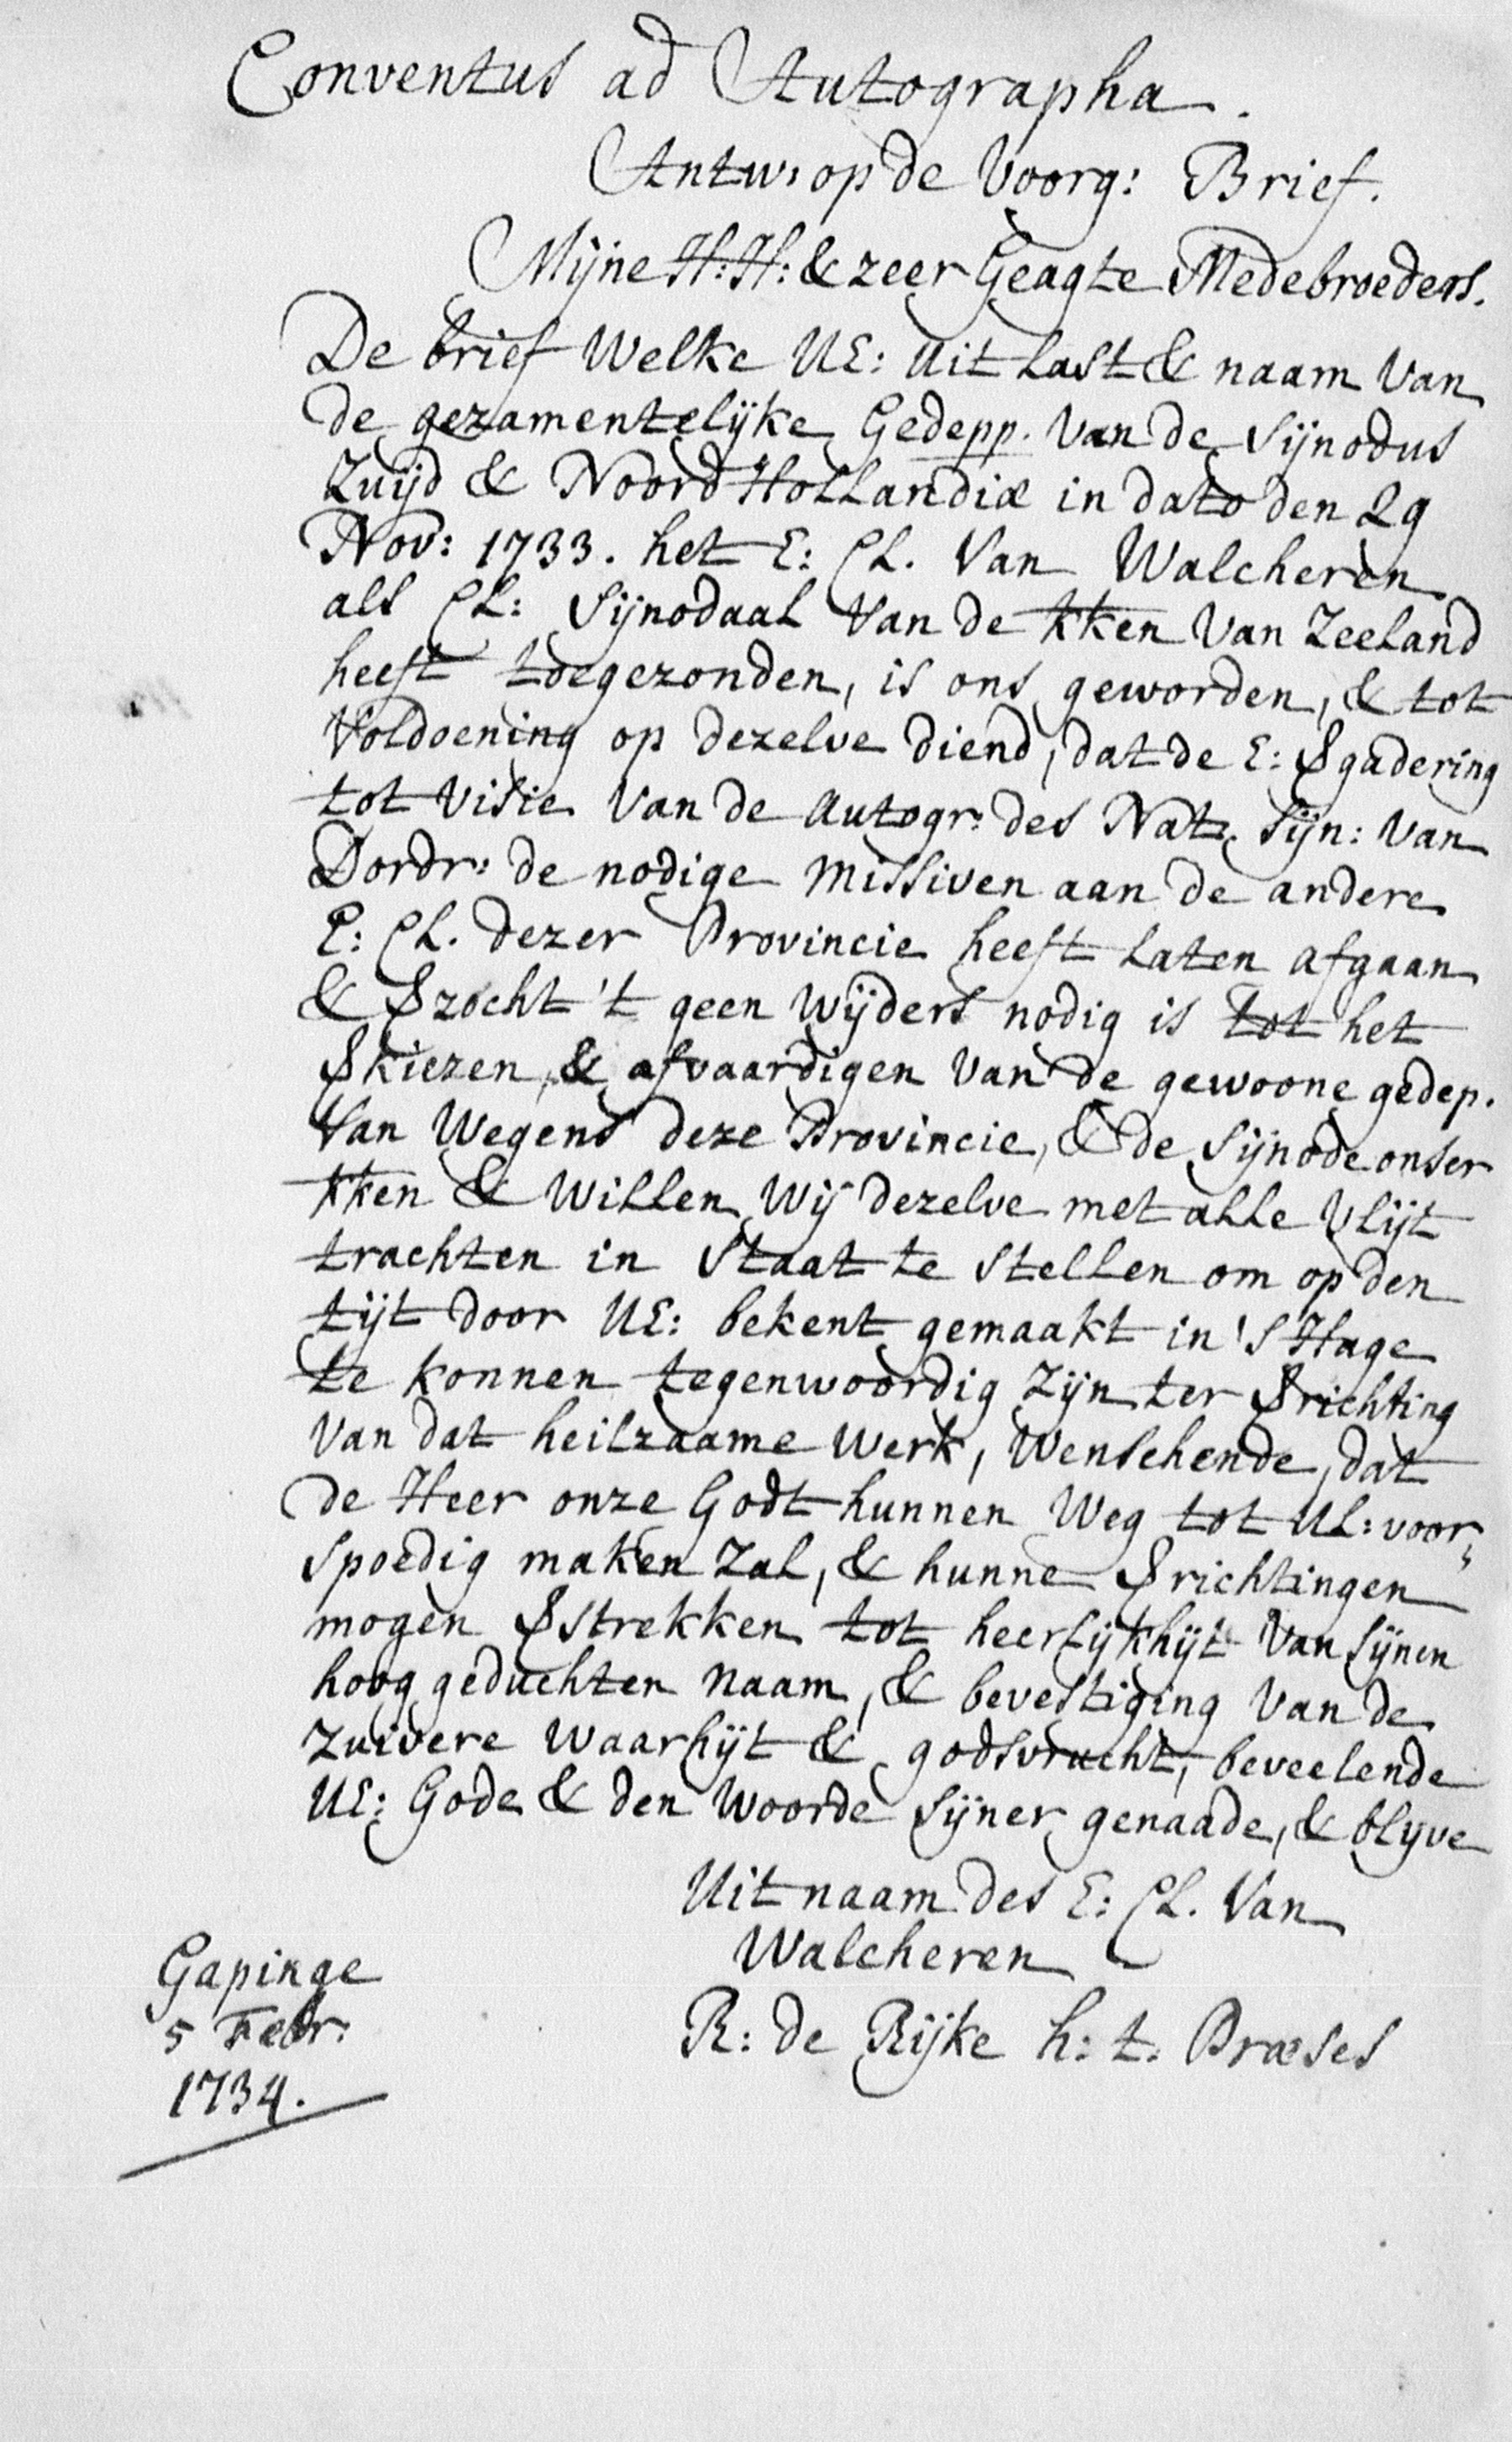 Conventus ad Autographa.
Antw: op de Voorg: Brief.
Mijne H:H: & zeer Geagte Medebroeders.
De brief Welke UE: Uit Last & naam Van
de gezamentelijke Gedepp. Van de Sijnodus
Zuijd & Noord Hollandiæ in dato den 29
Nov: 1733. het E: Cl. Van Walcheren
als Cl: Sijnodaal Van de kken Van Zeeland
heeft toegezonden, is ons geworden, & tot
Voldoening op dezelve diend, dat de E: Vgadering
tot Visie Van de Autogr: des Nat. Sijn: Van
Dordr: de nodige Missiven aan de andere
E: Cl. dezer Provincie heeft laten afgaan
& Vzocht 't geen Wijders nodig is tot het
Vkiezen, & afvaardigen Van de gewoone gedep.
Van Wegens deze Provincie, & de Sijnode onser
kken & Willen Wij dezelve met alle Vlijt
trachten in Staat te Stellen om op den
tijt door UE: bekent gemaakt in 's Hage
te konnen tegenwoordig Zijn ter Vrichting
Van dat heilzaame Werk, Wenschende, dat
de Heer onze Godt hunnen Weg tot UL: voor„
Spoedig maken Zal, & hunne Vrichtingen
mogen Vstrekken tot heerlijkhijt Van Sijnen
hoog geduchten Naam, & bevestiging Van de
Zuivere Waarhijt & godsvrucht, beveelende
UE: Gode & den Woorde Sijner genaade, & blyve
Uit naam des E: Cl. Van
Walcheren
R: de Rijke h: t: Præses
Gapinge
5 Febr:
1734.